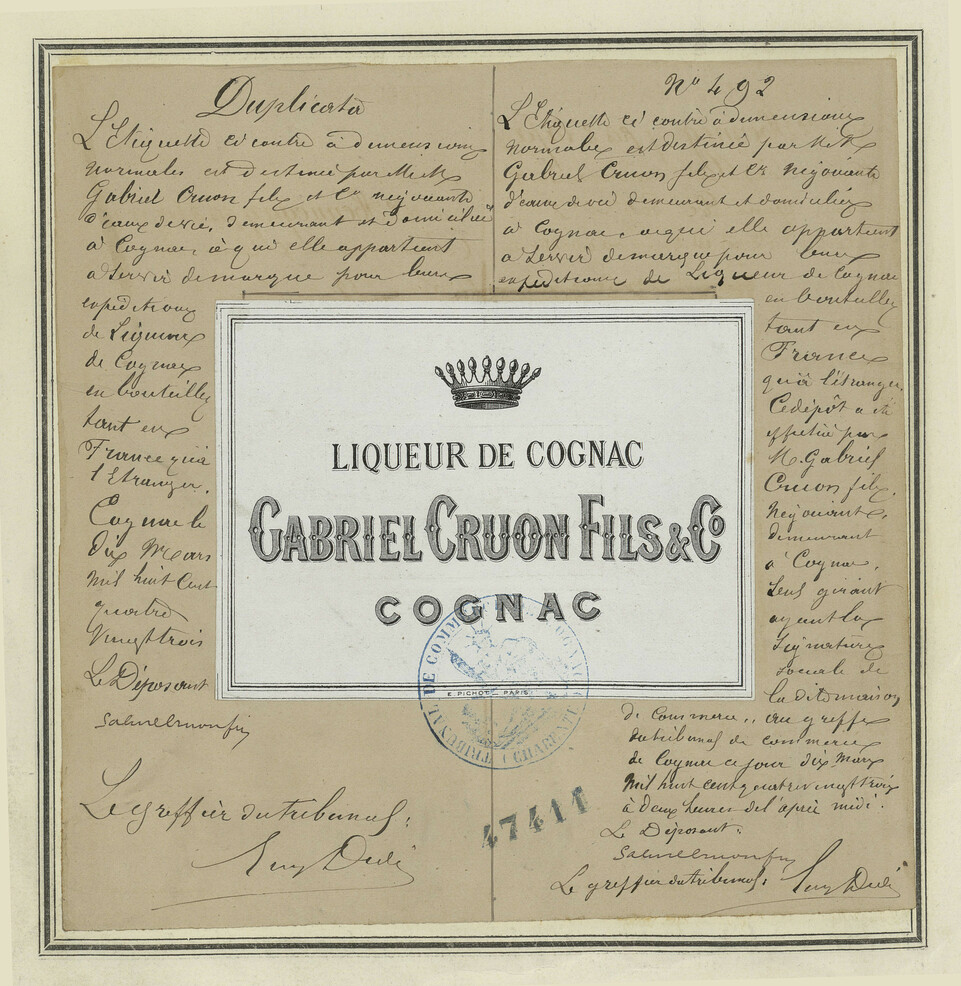 Duplicata
L'Etiquette ci contre à dimensions
normales est destinée par MM
Gabriel Cruon fils et Cie négociants
d'eaux de vie, demeurant et domiciliés
à Cognac, à qui elle appartient
a servir de marque pour leurs
expeditions
de Liqueur
de Cognac
en bouteilles
tant en
France qu'à
l'Etranger.
Cognac le
dix Mars
mil huit cent
quatre
vingt trois
Le Déposant
Le greffier du tribunal:
No 492
L'Etiquette ci contre à dimensions
normales est destinée par MM
Gabriel Cruon fils et Cie négociants
d'eaux de vie demeurant et domiciliés
à Cognac, à qui elle appartient
a servir de marque pour leurs
expeditions de Liqueur de Cognac
en bouteilles
tant en
France
qu'à l'étranger.
Ce dépôt a été
effectué par
M. Gabriel
Cruon fils,
négociant,
demeurant
à Cognac,
seul gérant
ayant la
signature
sociale de
la dite maison
de commerce, au greffe
du tribunal de commerce
de Cognac ce jour dix Mars
mil huit cent quatre vingt trois
à deux heures de l'après midi.
Le Déposant:
Le greffier du tribunal:
LIQUEUR DE COGNAC
GABRIEL CRUON FILS & Co
COGNAC
E. PICHOT_PARIS
TRIBUNAL DE COMMERCE COGNAC (CHARENTE)
47411